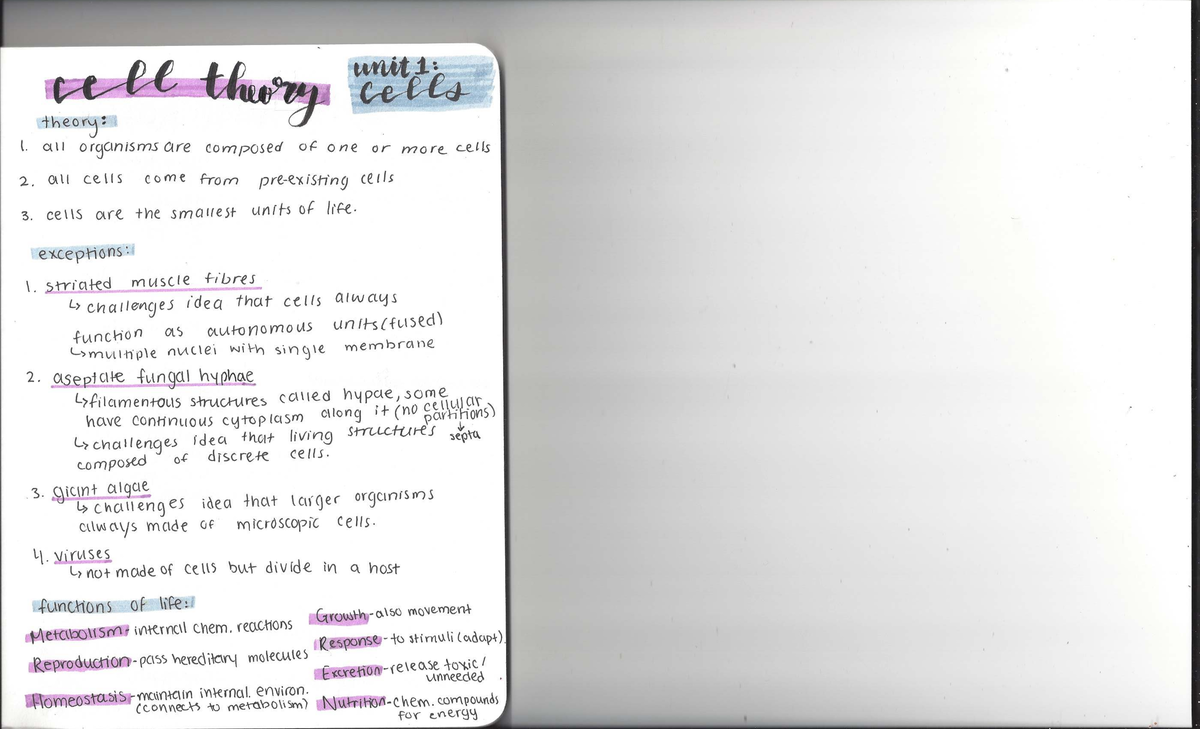 cell theory
unit 1:
cells
theory:
1. all organisms are composed of one or more cells
2. all cells come from pre-existing cells
3. cells are the smallest units of life.
exceptions:
1. striated muscle fibres
↳ challenges idea that cells always
function as autonomous units (fused)
↳ multiple nuclei with single membrane
2. aseptate fungal hyphae
↳ filamentous structures called hypae, some
have continuous cytoplasm along it (no cellular
partitions)
↓
septa
↳ challenges idea that living structures
composed of discrete cells.
3. giant algae
↳ challenges idea that larger organisms
always made of microscopic cells.
4. viruses
↳ not made of cells but divide in a host
functions of life:
Metabolism- internal chem. reactions
Reproduction-pass hereditary molecules
Homeostasis-maintain internal. environ.
(connects to metabolism)
Growth-also movement
Response-to stimuli (adapt)
Excretion-release toxic/
unneeded.
Nutrition-chem. compounds
for energy